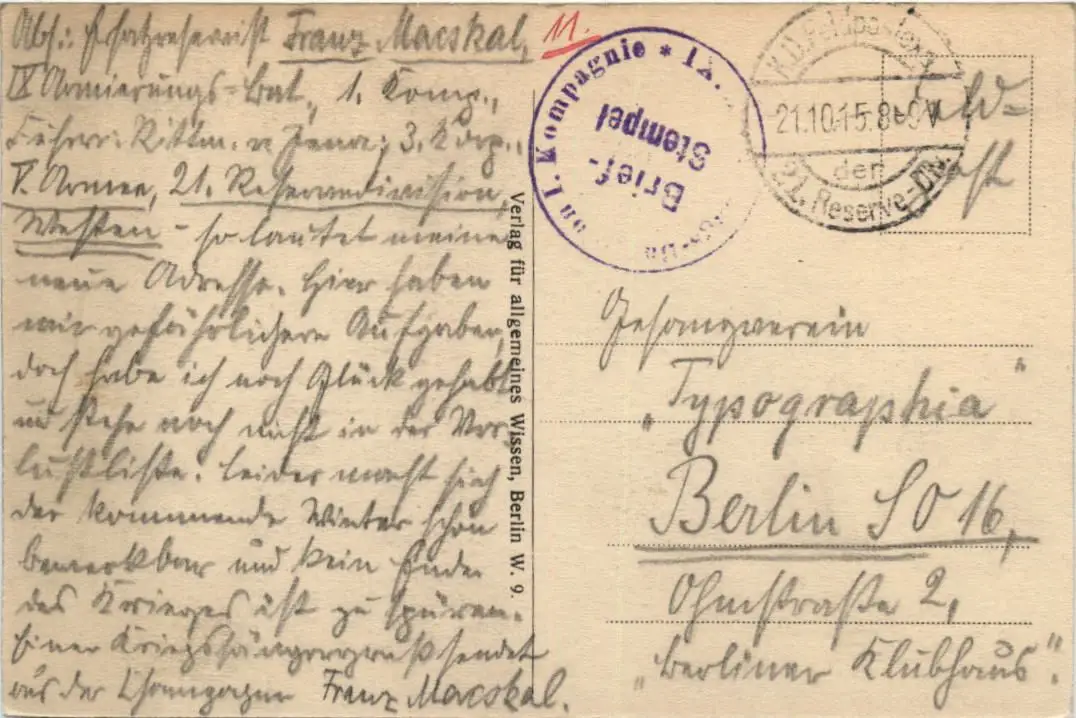 Abs.: Ersatzreservist Franz Macskal, 11.
IX Armierungs-Bat., 1. Komp.,
Führer: Rittm. v. Jena; 3. Korp.,
V. Armee, 21. Reservedivision,
Westen – so lautet meine
neue Adresse. Hier haben
wir gefährlichere Aufgaben,
doch habe ich noch Glück gehabt
und stehe noch nicht in der Ver-
lustliste. Leider macht sich
der kommende Winter schon
bemerkbar und kein Ende
des Krieges ist zu spüren.
Einen Kriegssängergruß sendet
aus der Champagne Franz Macskal.
Verlag für allgemeines Wissen, Berlin W. 9.
I. Kompagnie * IX.
Brief-
Stempel
K.D. Feldpostexp.
21.10.15. 8-9V
der
21. Reserve-Div.
Feld-
post
Gesangverein
„Typographia"
Berlin SO 16,
Ohmstraße 2,
„Berliner Klubhaus".